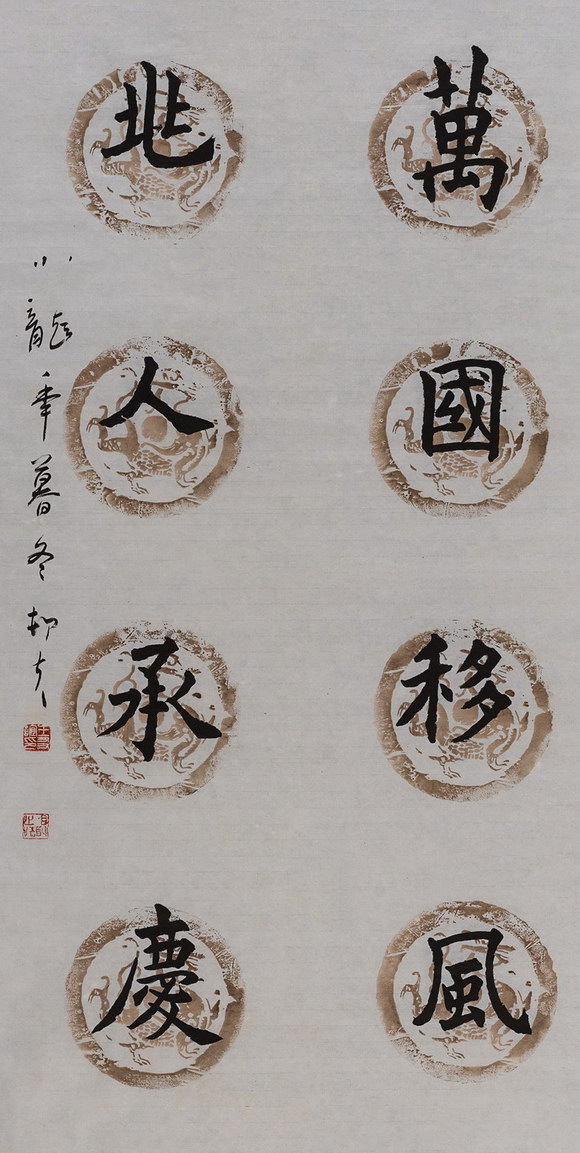 萬國移風
兆人承慶
小龍年暮冬